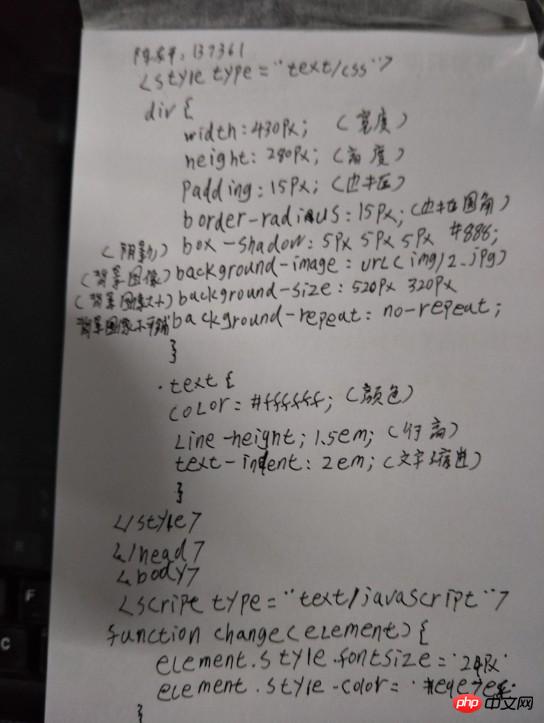 137361
<style type="text/css">
div {
width:430px; (宽度)
height:280px; (高度)
padding:15px;
border-radius:15px; 圆角)
(阴影) box-shadow:5px 5px 5px #888;
(背景图像) background-image:url(img/2.jpg)
(背景图像大小) background-size:520px 320px
背景图像不平铺 background-repeat: no-repeat;
}
.text {
color=#ffffff; (颜色)
line-height; 1.5em; (行高)
text-indent: 2em; (文字缩进)
}
</style>
</head>
<body>
<script type="text/javascript">
function change(element) {
element.style.fontsize='24px'
element.style.color=
}
php 中文网